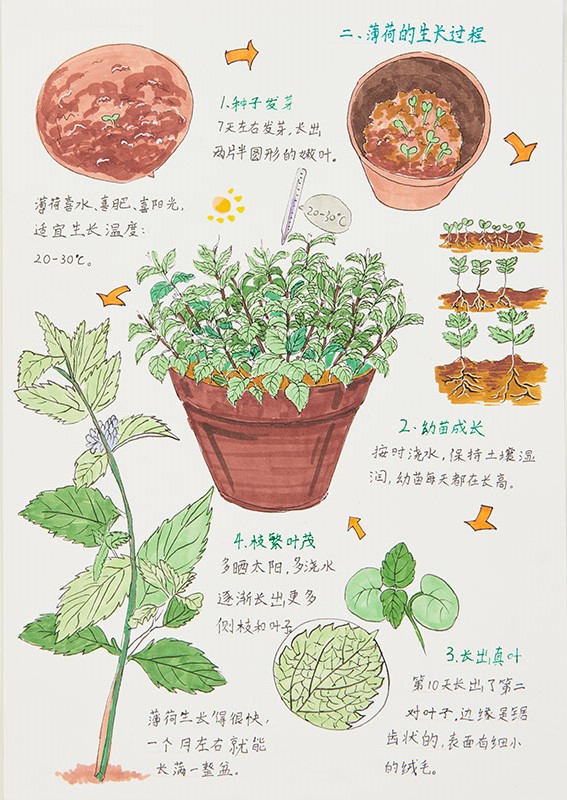 二、薄荷的生长过程
1.种子发芽
7天左右发芽,长出
两片半圆形的嫩叶。
薄荷喜水、喜肥、喜阳光,
适宜生长温度:
20-30℃。
20-30℃
2.幼苗成长
按时浇水,保持土壤湿
润,幼苗每天都在长高。
3.长出真叶
第10天长出了第二
对叶子,边缘是锯
齿状的,表面有细小
的绒毛。
4.枝繁叶茂
多晒太阳,多浇水
逐渐长出更多
侧枝和叶子
薄荷生长得很快,
一个月左右就能
长满一整盆。